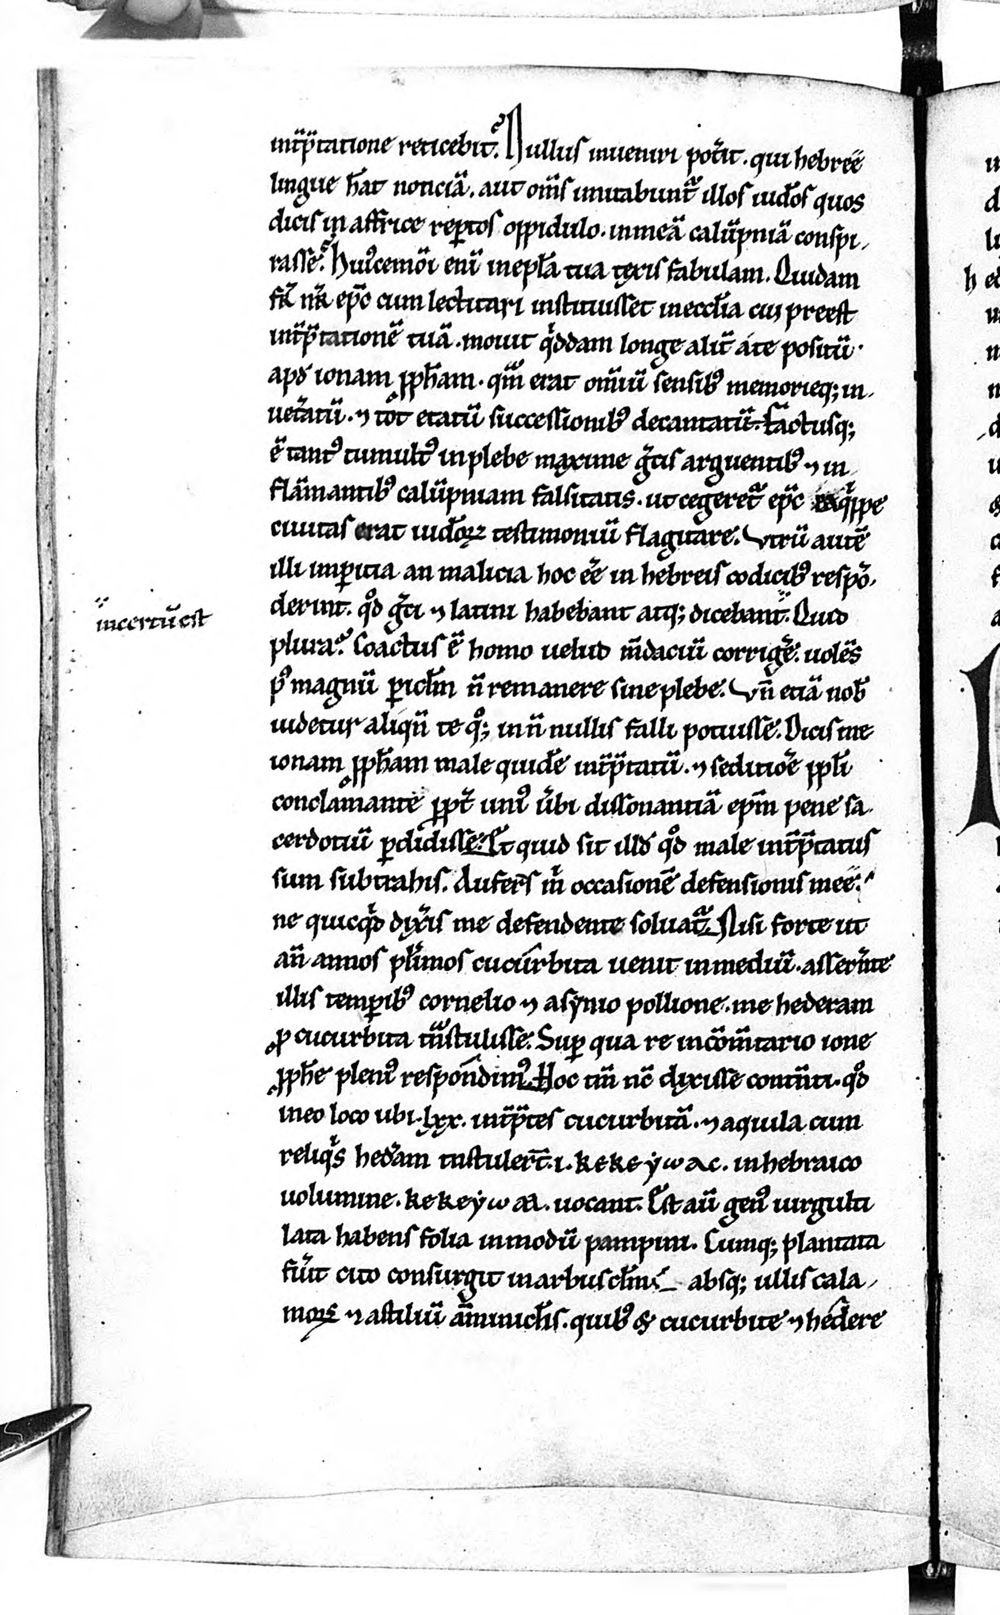 int̄p̄tatione reticebit. Nullus inueniri pot̄it. qui hebreę
lingue h̄at noticiā. aut om̄s imitabunt᷑ illos iud̄os quos
dicis in affrice rep̄tos oppidulo. in meā calūpniā conspi-
rasse. Hui᷒cemōi enī in epl̄a tua texis fabulam. Quidam
fr̄ nr̄ ep̄c cum lectitari instituisset in eccl̄ia cui preest
int̄p̄tationē tuā. mouit qͥddam longe alit̄ a te positū
apd̄ ionam ꝓph̄am. qm̄ erat om̄iū sensib᷒ memorieq; in-
uet̄atū. ⁊ tot etatū successionib᷒ decantatū. Factusq;
ē tant᷒ tumult᷒ in plebe maxime ḡcis arguentib᷒ ⁊ in-
flāmantib᷒ calūpniam falsitatis. ut cegeret᷑ ep̄c qͥppe
ciuitas erat iud̄oꝝ testimoniū flagitare. Vtrū autē
illi imꝑitia an malicia hoc eē in hebreis codicib᷒ respō-
derint. qͦd ḡci ⁊ latini habebant atq; dicebant. Quid
plura. Coactus ē homo uelud m̄daciū corrigē. uolēs
p᷒ magnū ꝑicl̄m n̄ remanere sine plebe. Vn̄ etiā nob̄
uidetur aliqn̄ te qͦ; in n̄ nullis falli potuisse. Dicis me
ionam ꝓph̄am male quidē int̄p̄tatū. ⁊ seditiōe ppl̄i
conclamante ꝓpt̄ uni᷒ ūbi dissonantiā ep̄m pene sa-
cerdotiū ꝑdidisse. Et quid sit illd̄ qͦd male int̄p̄tatus
sum subtrahis. Aufers m̄ occasionē defensionis meę.
ne quicqͥd dix̄is me defendente soluat᷑. Nisi forte ut
an̄ annos pl̄imos cucurbita uenit in mediū. asser̄nte
illis temꝑib᷒ cornelio ⁊ asynio pollione. me hederam
ꝓ cucurbita tn̄stulisse. Sup qua re in cōm̄tario ione
ꝓph̄e pleni᷒ respondim᷒. Hoc tm̄ nc̄ dixisse contn̄ti. qͦd
in eo loco ubi. lxx. int̄p̄tes cucurbitā. ⁊ aquila cum
reliqͥs hed̄am tn̄stuler̄t. i. kekeẏωac. in hebraico
uolumine. kekeẏωaa. uocant. Est aū gen᷒ uirgulti
lata habens folia in modū pampini. Cumq; plantata
fūit cito consurgit in arbuscl̄m absq; ullis cala-
moꝝ ⁊ astiliū ām̄inicl̄is. quib᷒ & cucurbite ⁊ hedere
incertū est